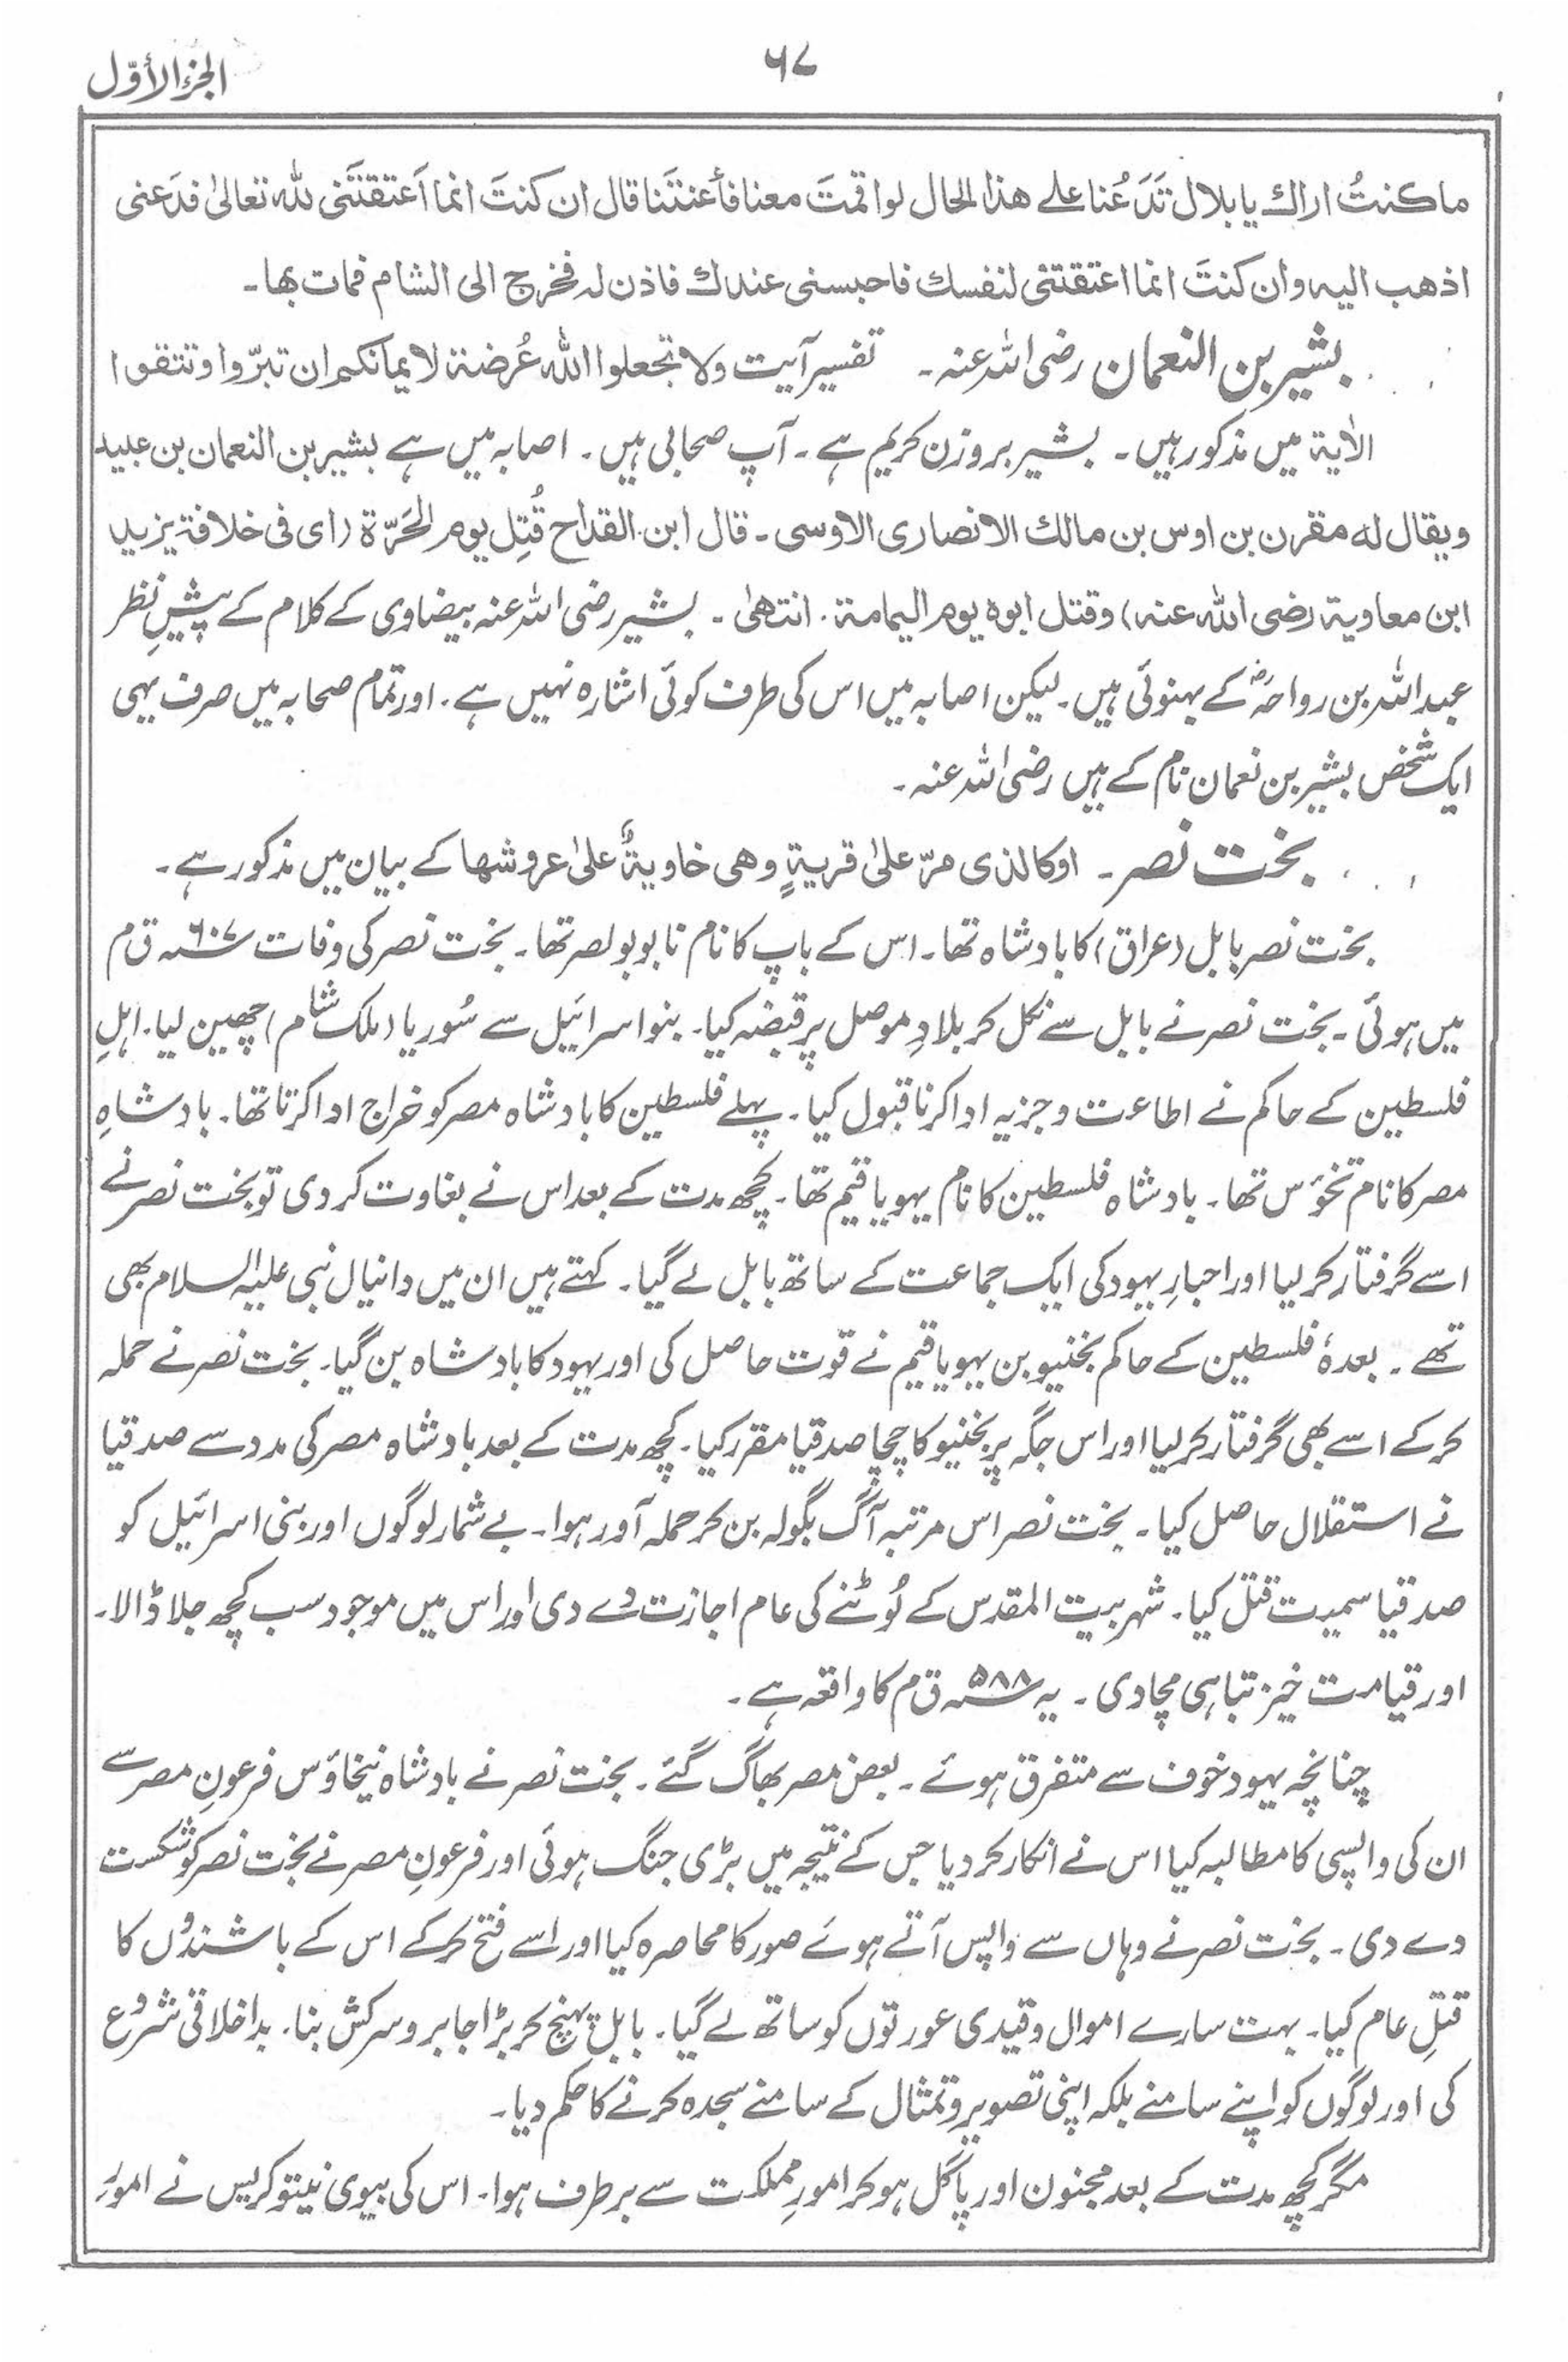 ٦٧
الجزء الأوّل
ما كنتُ اراك يا بلال تَدَعُنا على هذا الحال لو اقمتَ معنا فأعنتَنا قال ان كنتَ انما اَعتقتَنی لله تعالیٰ فدَعنی
اذهب اليه وان كنتَ انما اعتقتنی لنفسك فاحبسنی عندك فاذن له فخرج الی الشام فمات بها۔
بشیر بن النعمان رضی اللہ عنہ ۔ تفسیر آیت ولا تجعلوا الله عُرضة لايمانكم ان تبرّوا وتتقوا
الاٰية میں مذکور ہیں ۔ بشیر بروزن کریم ہے ۔ آپ صحابی ہیں ۔ اصابہ میں ہے بشیر بن النعمان بن عبید
ويقال له مقرن بن اوس بن مالك الانصاری الاوسی ۔ قال ابن القداح قُتِل يوم الحَرّة (ای فی خلافة يزيد
ابن معاوية رضی الله عنه) وقتل ابوه يوم اليمامة . انتهیٰ ۔ بشیر رضی اللہ عنہ بیضاوی کے کلام کے پیشِ نظر
عبد اللہ بن رواحہؓ کے بہنوئی ہیں ۔ لیکن اصابہ میں اس کی طرف کوئی اشارہ نہیں ہے ۔ اور تمام صحابہ میں صرف یہی
ایک شخص بشیر بن نعمان نام کے ہیں رضی اللہ عنہ ۔
بخت نصر ۔ اوكالذی مرّ علیٰ قريةٍ وهی خاويةٌ علیٰ عروشها کے بیان میں مذکور ہے ۔
بخت نصر بابل (عراق) کا بادشاہ تھا ۔ اس کے باپ کا نام نابو بولصر تھا ۔ بخت نصر کی وفات ۶۰۷؁ ق م
میں ہوئی ۔ بخت نصر نے بابل سے نکل کر بلادِ موصل پر قبضہ کیا ۔ بنو اسرائیل سے سُوریا (ملک شام) چھین لیا ۔ اہلِ
فلسطین کے حاکم نے اطاعت و جزیہ ادا کرنا قبول کیا ۔ پہلے فلسطین کا بادشاہ مصر کو خراج ادا کرتا تھا ۔ بادشاہِ
مصر کا نام نخوٴس تھا ۔ بادشاہ فلسطین کا نام یہویاقیم تھا ۔ کچھ مدت کے بعد اس نے بغاوت کر دی تو بخت نصر نے
اسے گرفتار کر لیا اور احبارِ یہود کی ایک جماعت کے ساتھ بابل لے گیا ۔ کہتے ہیں ان میں دانیال نبی علیہ السلام بھی
تھے ۔ بعدہٗ فلسطین کے حاکم یخنیو بن یہویاقیم نے قوت حاصل کی اور یہود کا بادشاہ بن گیا ۔ بخت نصر نے حملہ
کر کے اسے بھی گرفتار کر لیا اور اس جگہ پر یخنیو کا چچا صدقیا مقرر کیا ۔ کچھ مدت کے بعد بادشاہ مصر کی مدد سے صدقیا
نے استقلال حاصل کیا ۔ بخت نصر اس مرتبہ آگ بگولہ بن کر حملہ آور ہوا ۔ بے شمار لوگوں اور بنی اسرائیل کو
صدقیا سمیت قتل کیا ۔ شہر بیت المقدس کے لُوٹنے کی عام اجازت دے دی اور اس میں موجود سب کچھ جلا ڈالا ۔
اور قیامت خیز تباہی مچا دی ۔ یہ ۵۸۸؁ ق م کا واقعہ ہے ۔
چنانچہ یہود خوف سے متفرق ہوئے ۔ بعض مصر بھاگ گئے ۔ بخت نصر نے بادشاہ نیخاؤس فرعونِ مصر سے
ان کی واپسی کا مطالبہ کیا اس نے انکار کر دیا جس کے نتیجہ میں بڑی جنگ ہوئی اور فرعونِ مصر نے بخت نصر کو شکست
دے دی ۔ بخت نصر نے وہاں سے واپس آتے ہوئے صور کا محاصرہ کیا اور اسے فتح کر کے اس کے باشندوں کا
قتلِ عام کیا ۔ بہت سارے اموال و قیدی عورتوں کو ساتھ لے گیا ۔ بابل پہنچ کر بڑا جابر و سرکش بنا ۔ بد اخلاقی شروع
کی اور لوگوں کو اپنے سامنے بلکہ اپنی تصویر و تمثال کے سامنے سجدہ کرنے کا حکم دیا ۔
مگر کچھ مدت کے بعد مجنون اور پاگل ہو کر امورِ مملکت سے برطرف ہوا ۔ اس کی بیوی نیتوکریس نے امورِ